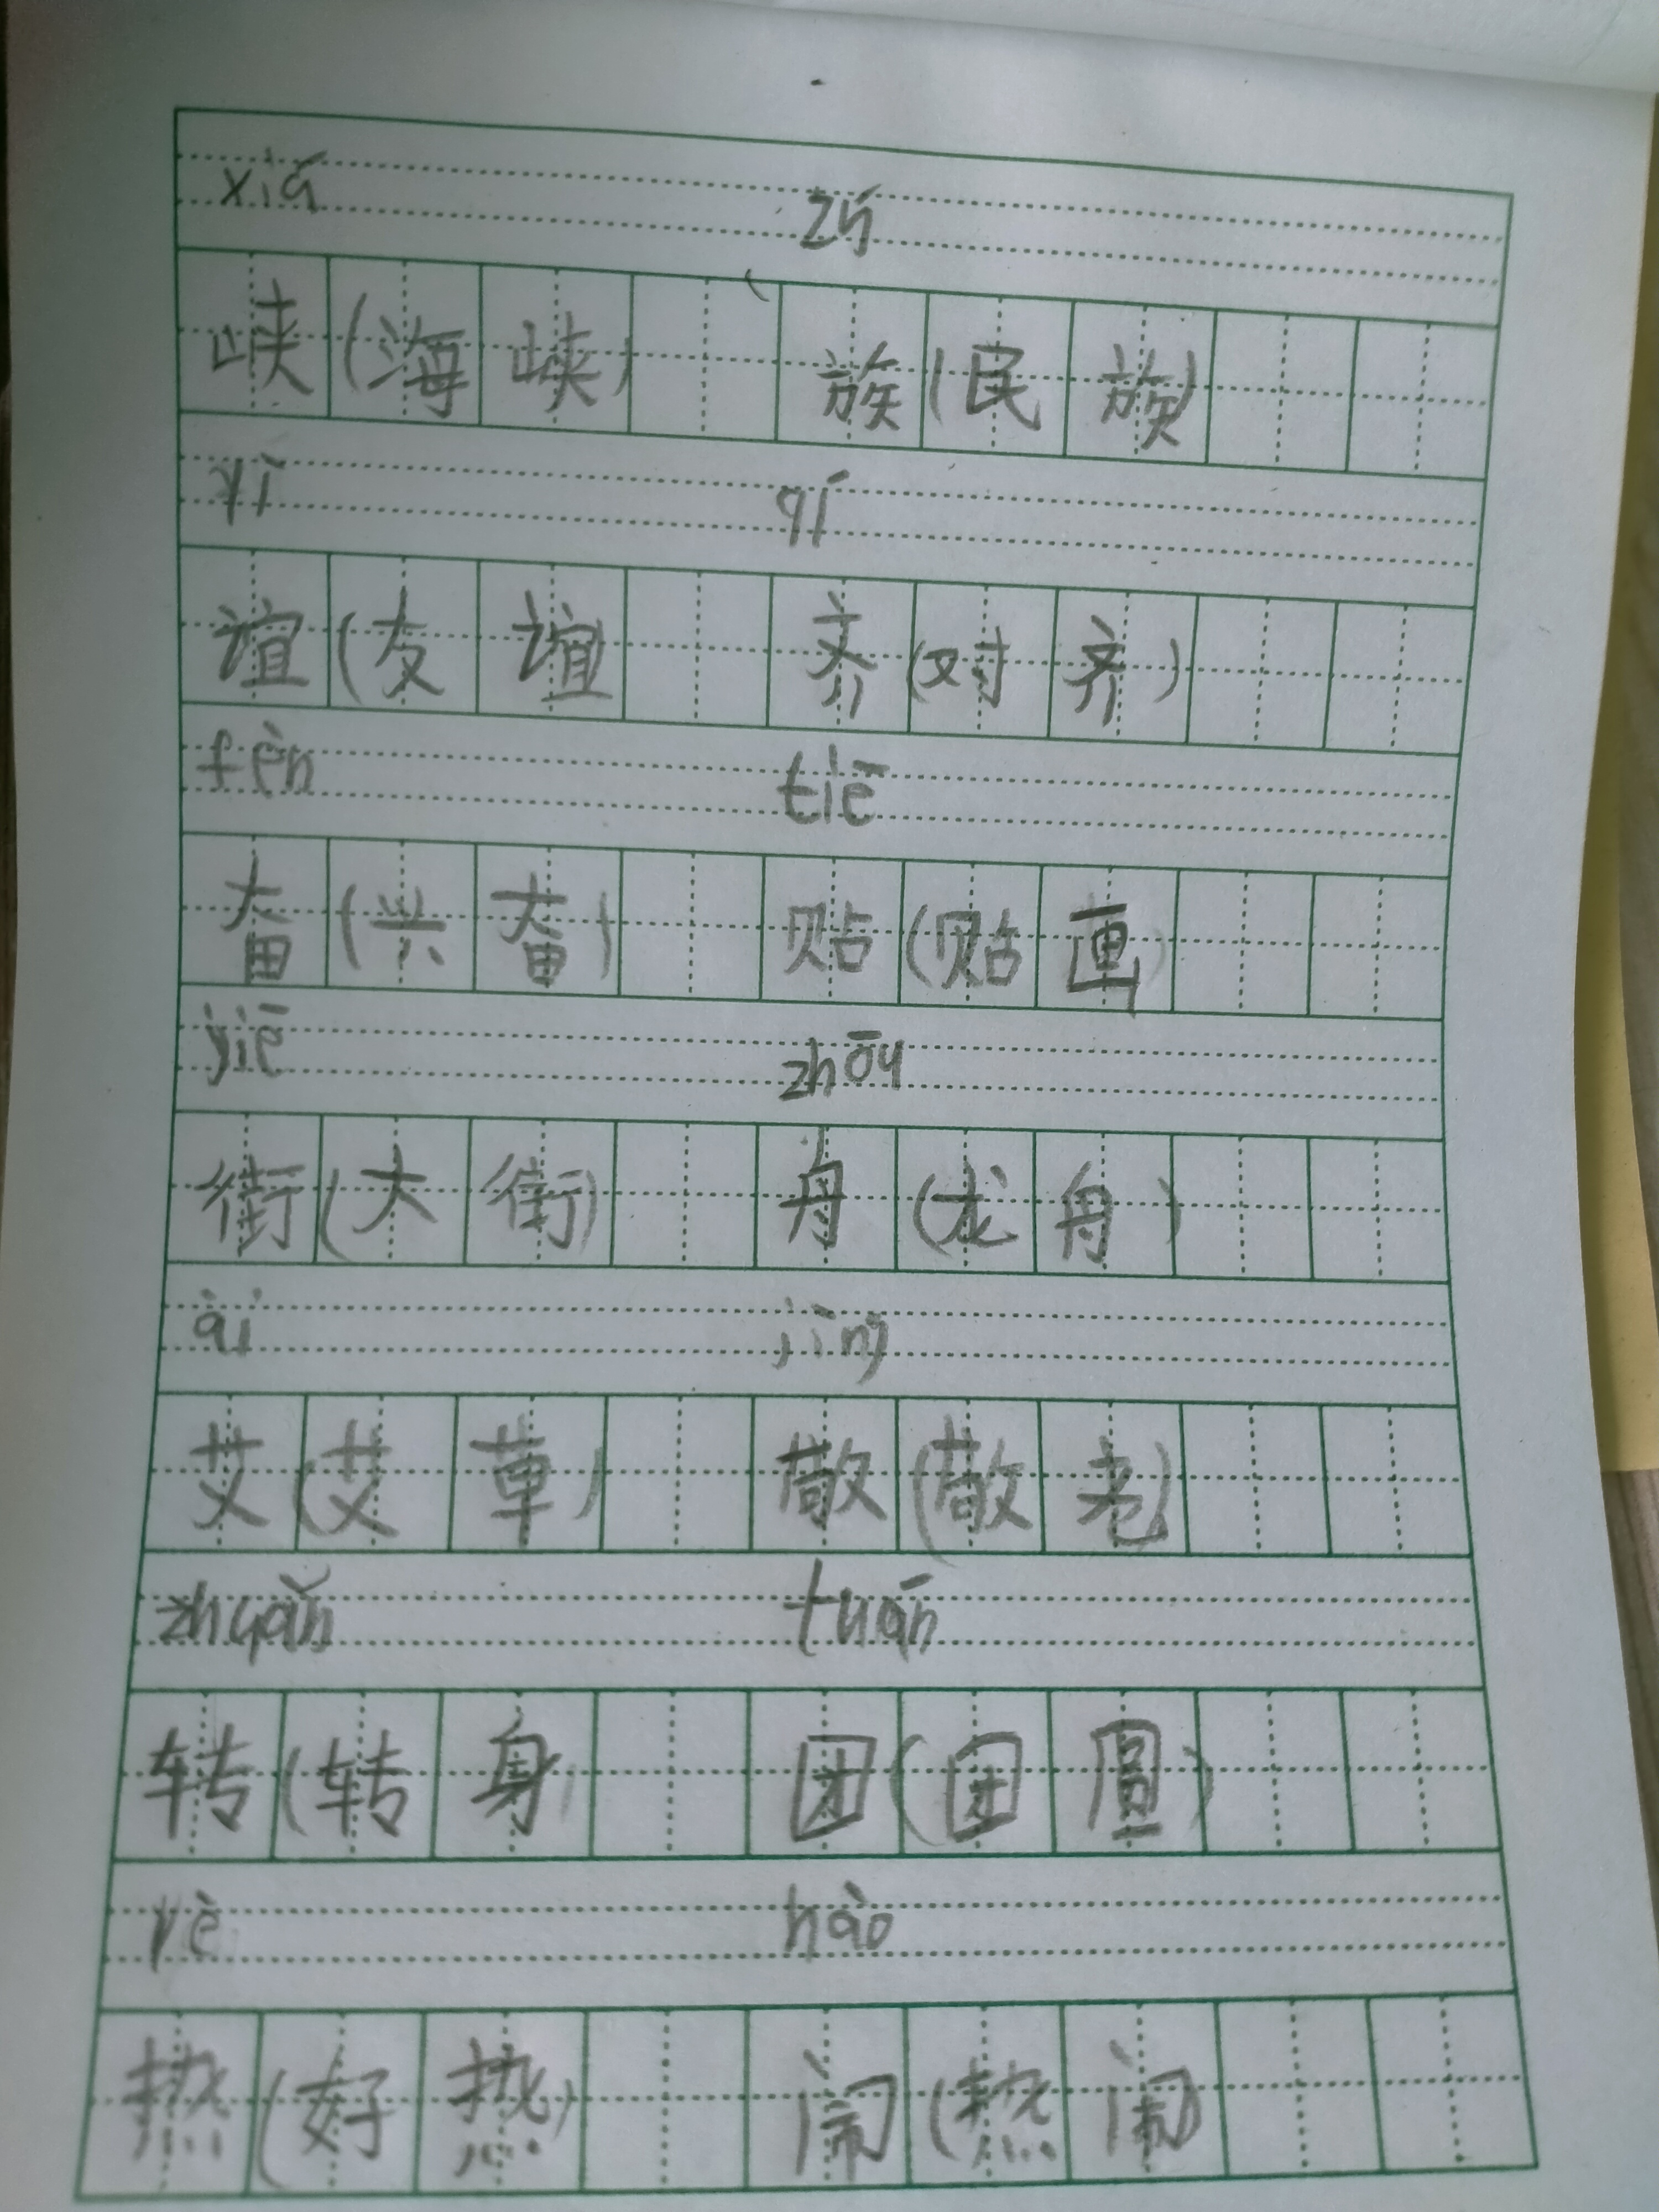 xiá zú
峡（海峡） 族（民族）
yì qí
谊（友谊 齐（对齐）
fèn tiē
奋（兴奋） 贴（贴画）
jiē zhōu
街（大街） 舟（龙舟）
ài jìng
艾（艾草） 敬（敬老）
zhuǎn tuán
转（转身） 团（团圆）
rè nào
热（好热） 闹（热闹